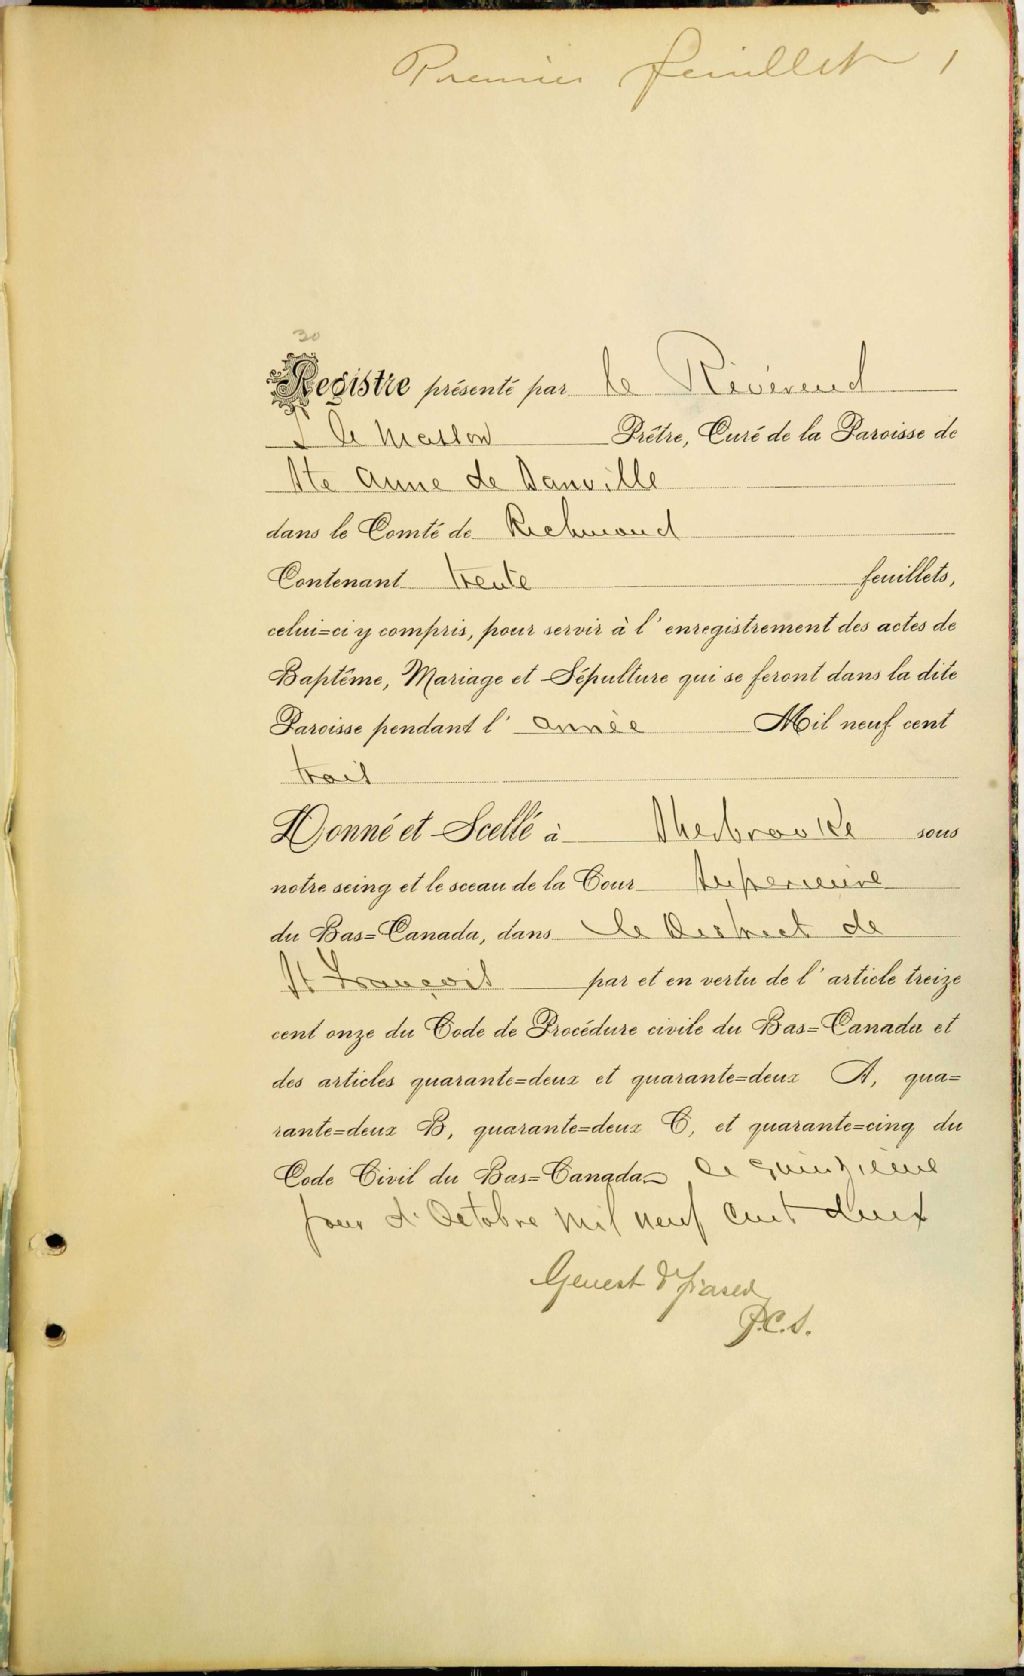 Premier feuillet 1
30
Registre présenté par le Révérend
J le Masson Prêtre, Curé de la Paroisse de
Ste Anne de Danville
dans le Comté de Richmond
Contenant trente feuillets,
celui=ci y compris, pour servir à l'enregistrement des actes de
Baptême, Mariage et Sépulture qui se feront dans la dite
Paroisse pendant l'année Mil neuf cent
trois
Donné et Scellé à Sherbrooke sous
notre seing et le sceau de la Cour Superieure
du Bas=Canada, dans le District de
St François par et en vertu de l'article treize
cent onze du Code de Procédure civile du Bas=Canada et
des articles quarante=deux et quarante=deux A, qua=
rante=deux B, quarante=deux C, et quarante=cinq du
Code Civil du Bas=Canada ce quinzième
jour d'Octobre mil neuf cent deux
Genest & Fraser
P.C.S.